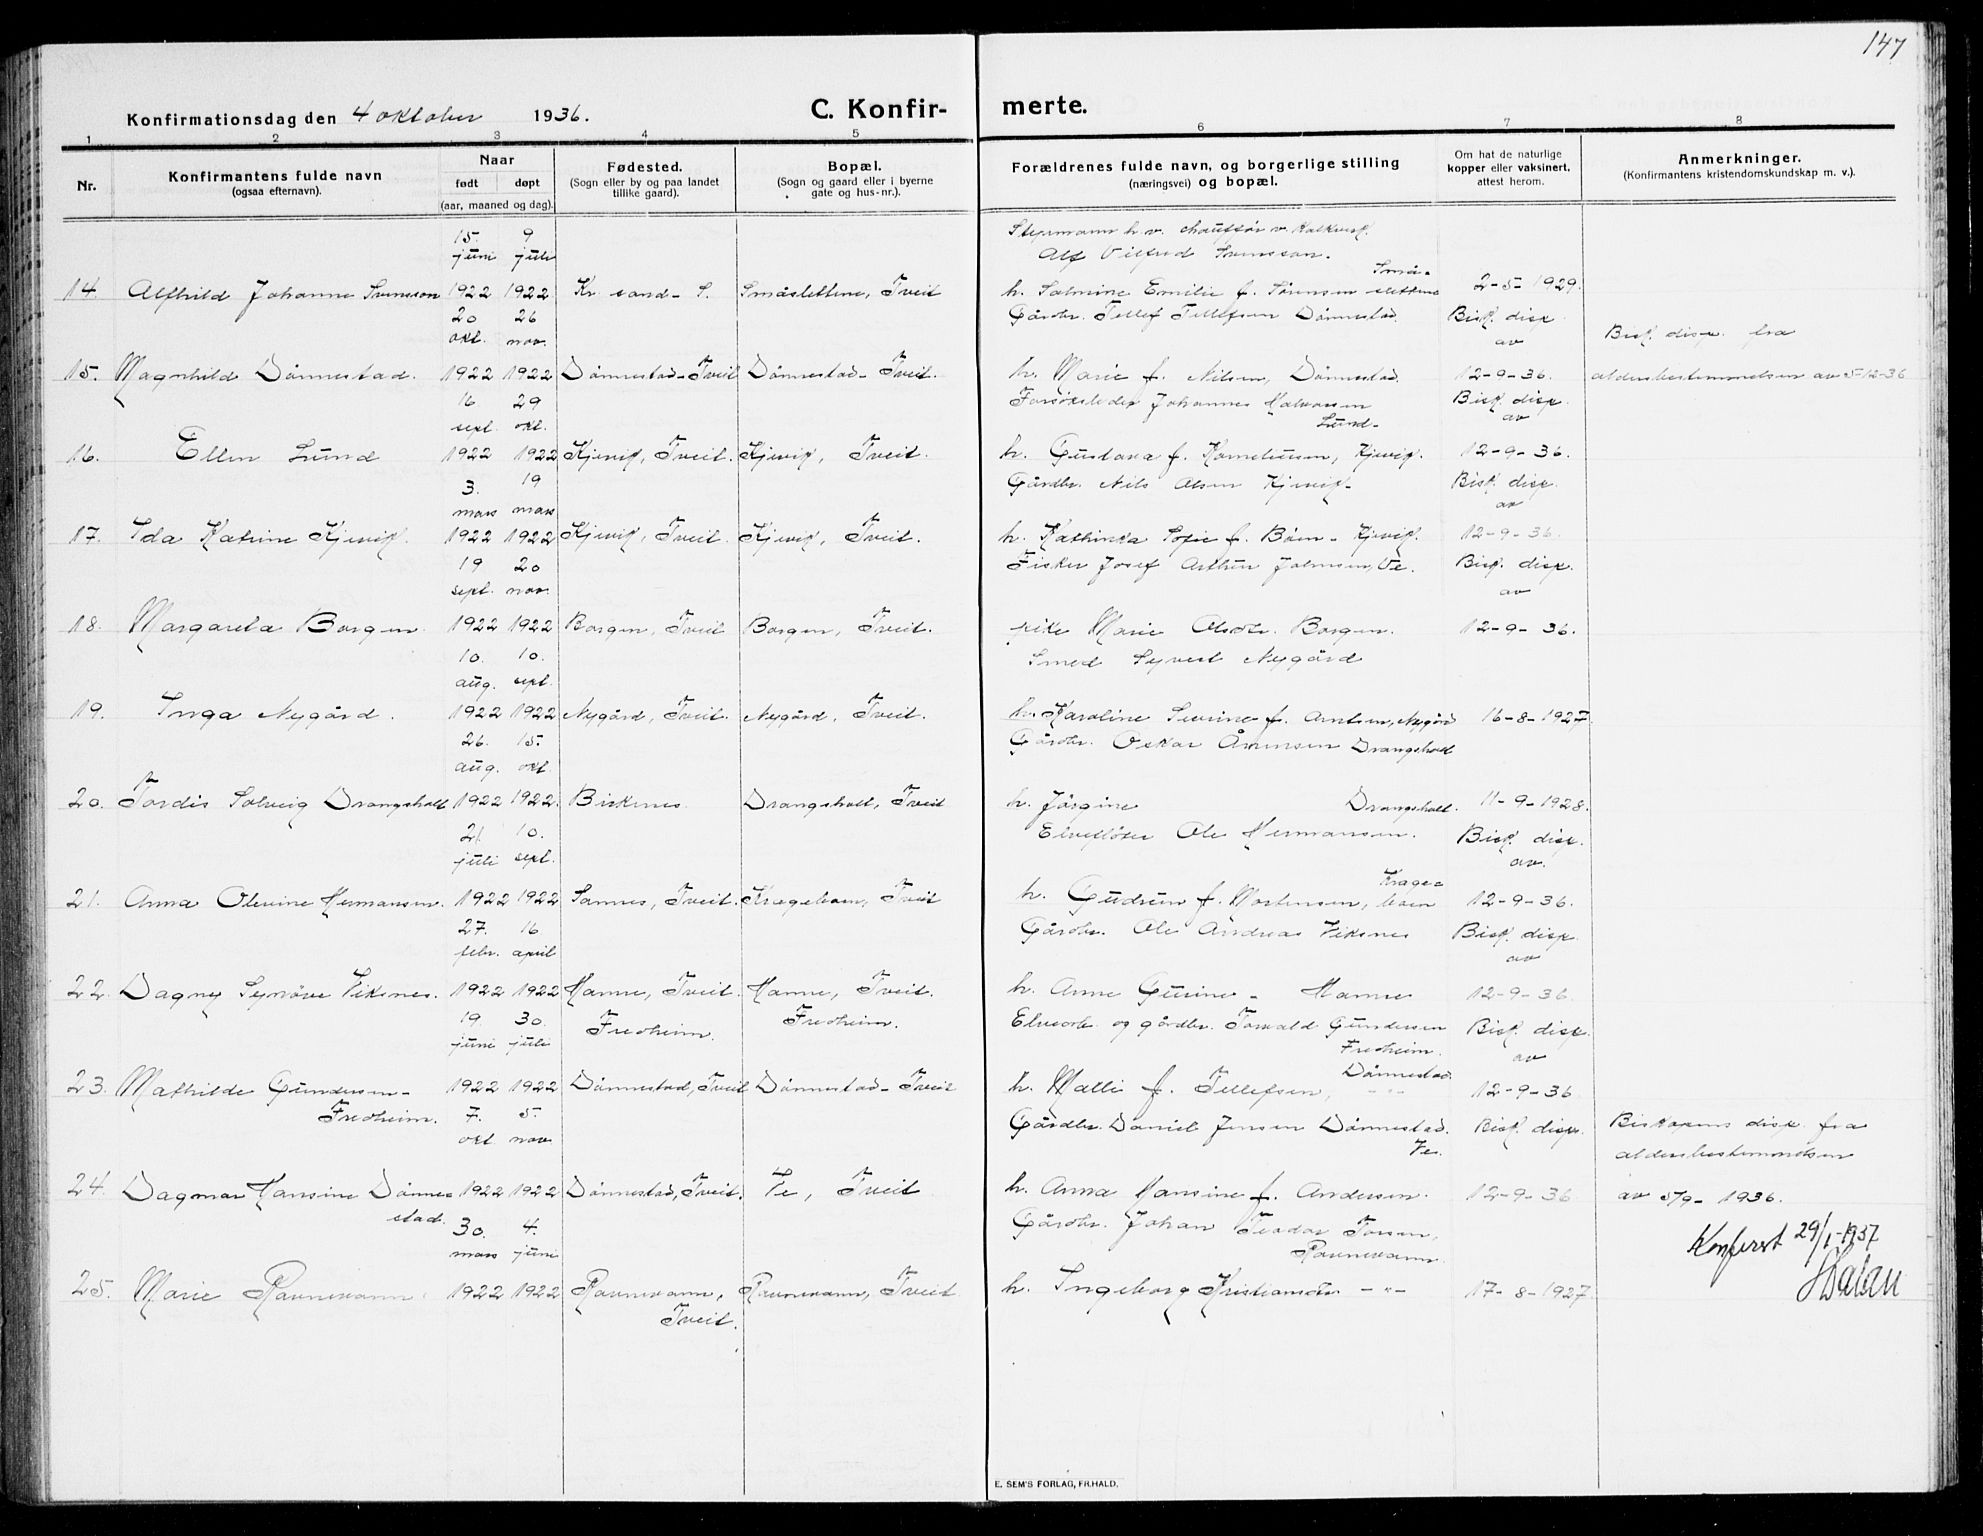 147
Konfirmationsdag den 4 oktober 1936. C. Konfir- merte.
1 2 3 4 5 6 7 8
Nr. Konfirmantens fulde navn (ogsaa efternavn). Naar født døpt (aar, maaned og dag). Fødested. (Sogn eller by og paa landet tillike gaard). Bopæl. (Sogn og gaard eller i byerne gate og hus-nr.). Forældrenes fulde navn, og borgerlige stilling (næringsvei) og bopæl. Om hat de naturlige kopper eller vaksinert, attest herom. Anmerkninger. (Konfirmantens kristendomskundskap m. v.).
15. juni 9 juli Styrmann h. v. chauffør v.
Alf Vilfred Svensson.
14. Alfhild Johanne Svensson 1922 1922 Kr. sand - S. Småslettene, Tveit h. Salmine Emilie f. Sørensen Små-slettene 2-5-1929.
20 okt. 26 nov. Gårdbr. Tellef Tellefsen Dønnestad. Bisk. disp. av Bisk. disp. fra
15. Magnhild Dønnestad. 1922 1922 Dønnestad - Tveit Dønnestad - Tveit. h. Marie f. Nilsen, Dønnestad. 12-9-36. aldersbestemmelsen av 5-12-36
16 sept. 29 okt. Forsøksleder Johannes Halvorsen Lund - Bisk. disp. av
16. Ellen Lund 1922 1922 Kjevik, Tveit. Kjevik, Tveit. h. Gustava f. Korneliussen, Kjevik. 12-9-36.
3. mars 19 mars Gårdbr. Nils Olsen Kjevik - Bisk. disp. av
17. Ida Katrine Kjevik. 1922 1922 Kjevik, Tveit. Kjevik, Tveit. h. Kathinka Sofie f. Bøen - Kjevik. 12-9-36.
19 sept. 20 nov. Fisker Josef Arthur Johnsen, Ve. Bisk. disp. av
18. Margareta Borgen. 1922 1922 Borgen, Tveit Borgen, Tveit. pike Marie Olsdtr. Borgen. 12-9-36.
10. aug. 10. sept. Smed Syvert Nygård
19. Inga Nygård. 1922 1922 Nygård, Tveit. Nygård, Tveit. h. Karoline Severine f. Arntsen, Nygård 16-8-1927.
26. aug. 15. okt. Gårdbr. Oskar Drangsholt
20. Tordis Solveig Drangsholt 1922 1922. Birkenes. Drangsholt, Tveit h. Jørgine Drangsholt. 11-9-1928.
21. juli 10. sept. Elvefløter Ole Hermansen. Bisk. disp. av.
21. Anna Olevine Hermansen. 1922 1922 Sannes, Tveit. Krageboen, Tveit h. Gudrun f. Mortensen, Krage=boen 12-9-36.
27. febr. 16 april Gårdbr. Ole Andreas Viksnes Bisk. disp. av
22. Dagny Synøve Viksnes. 1922 1922 Hamre, Tveit. Hamre, Tveit. h. Anne Gurine - Hamre 12-9-36.
19 juni 30. juli Fredheim. Fredheim. Elvearb. og gårdbr. Torvald Gundersen Fredheim. Bisk. disp. av
23. Mathilde Gundersen - Fredheim. 1922 1922 Dønnestad, Tveit Dønnestad - Tveit h. Malli f. Tellefsen, Dønnestad. 12-9-36
7. okt 5. nov. Gårdbr. Daniel Jensen Dønnestad. Ve. Bisk. disp. Biskopens disp. fra
aldersbestemmelsen
24. Dagmar Hansine Dønnestad. 1922 1922 Dønnestad, Tveit. Ve, Tveit h. Anna Hansine f. Andersen. 12-9-36 av 5/9-1936.
30. mars 4. juni Gårdbr. Johan Teodor Torsen, Ravnevann. Konferert 29/1-1937
25. Marie Ravnevann. 1922 1922 Ravnevann, Tveit. Ravnevann, Tveit h. Ingeborg Kristiansdtr. - " - 17-8-1927.
E. SEM'S FORLAG, FR.HALD.